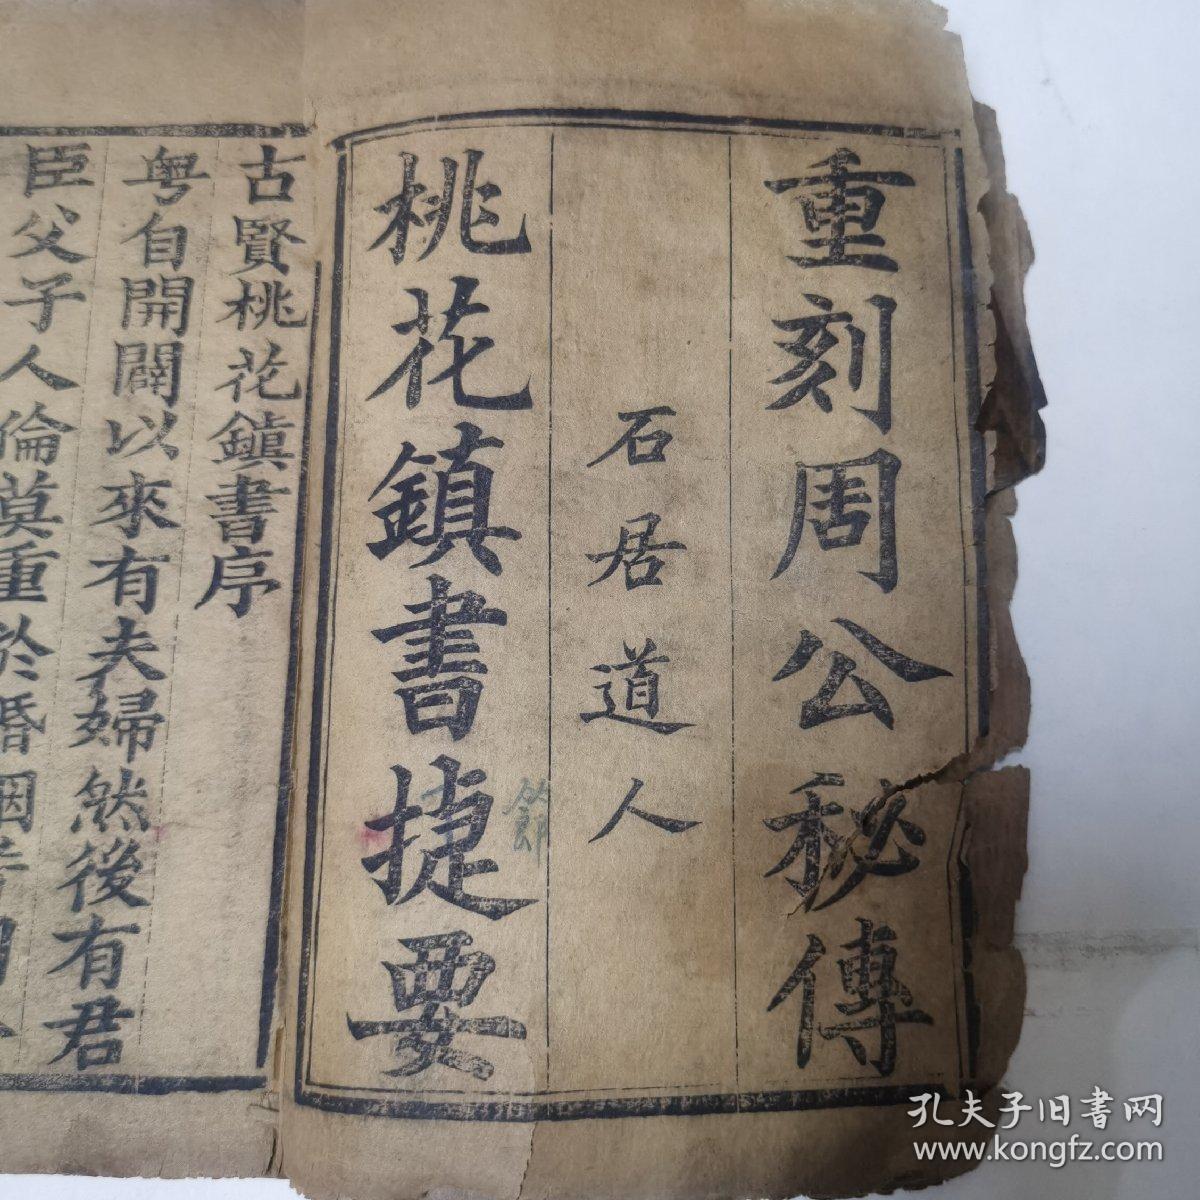 重刻周公秘傳
石居道人
桃花鎮書捷要
古賢桃花鎮書序
粤自開闢以來有夫婦然後有君
臣父子人倫莫重於婚姻
孔夫子旧書网
www.kongfz.com